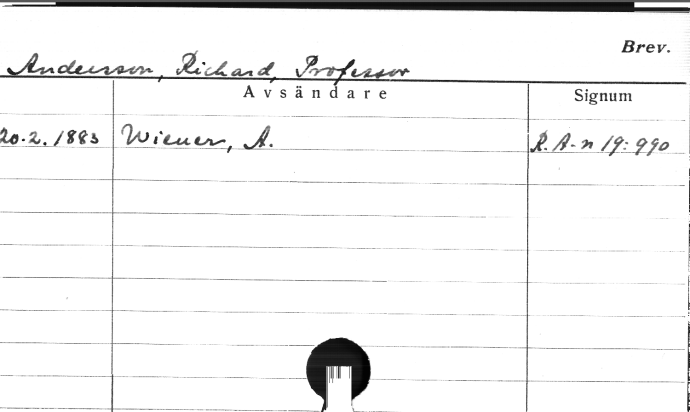 Brev.
Andersson, Richard, Professor
Avsändare Signum
20.2.1883 Wiener, A. R. A-n 19: 990